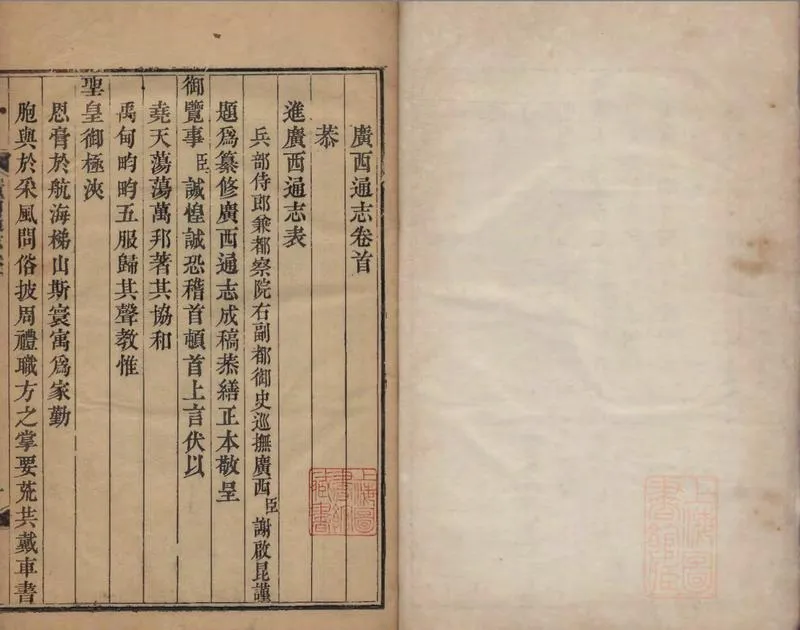 廣西通志卷首
恭
進廣西通志表
兵部侍郎兼都察院右副都御史巡撫廣西臣謝啟昆謹
題爲纂修廣西通志成稿恭繕正本敬呈
御覽事臣誠惶誠恐稽首頓首上言伏以
堯天蕩蕩萬邦著其協和
禹甸畇畇五服歸其聲教惟
聖皇御極浹
恩膏於航海梯山斯寰寓爲家勤
胞與於采風問俗披周禮職方之掌要荒共戴車書
上海圖書館藏書